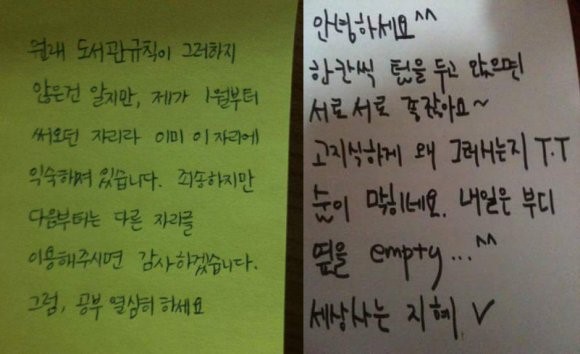 원래 도서관규칙이 그러하지
않은건 알지만, 제가 1월부터
써오던 자리라 이미 이 자리에
익숙하져 있습니다. 죄송하지만
다음부터는 다른 자리를
이용해주시면 감사하겠습니다.
그럼, 공부 열심히 하세요
안녕하세요^^
한칸씩 텀을 두고 앉으면
서로 서로 좋잖아요~
고지식하게 왜 그러시는지 T.T
숨이 막히네요. 내일은 부디
옆을 empty...^^
세상사는 지혜 ✓